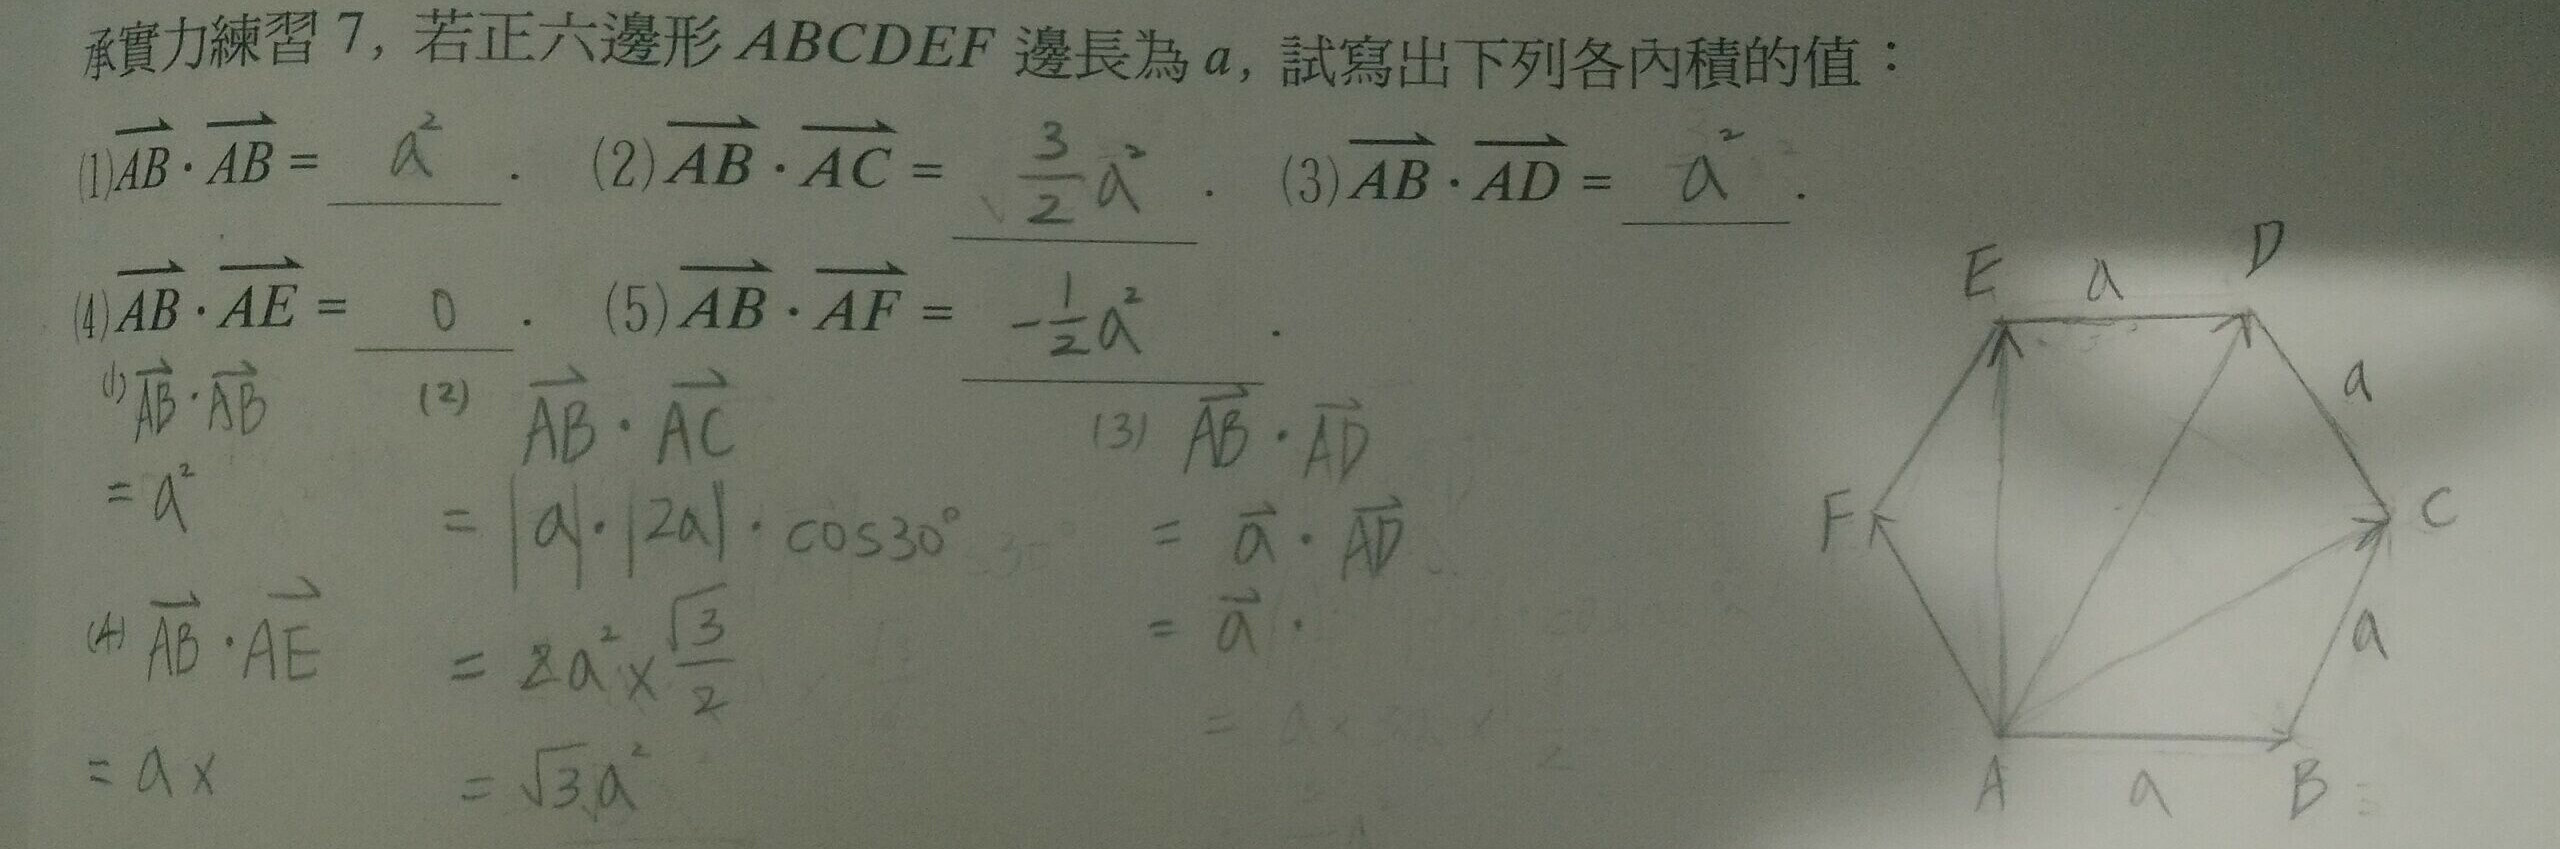 承實力練習 7, 若正六邊形 ABCDEF 邊長為 a, 試寫出下列各內積的值：
(1) $\overrightarrow{AB}\cdot\overrightarrow{AB}$ = a² . (2) $\overrightarrow{AB}\cdot\overrightarrow{AC}$ = $\frac{3}{2}$a² . (3) $\overrightarrow{AB}\cdot\overrightarrow{AD}$ = a² .
(4) $\overrightarrow{AB}\cdot\overrightarrow{AE}$ = 0 . (5) $\overrightarrow{AB}\cdot\overrightarrow{AF}$ = $-\frac{1}{2}$a² .
(1) $\overrightarrow{AB}\cdot\overrightarrow{AB}$
= a²
(2) $\overrightarrow{AB}\cdot\overrightarrow{AC}$
= |a|·|2a|·cos30°
= 2a² × $\frac{\sqrt{3}}{2}$
= √3a²
(3) $\overrightarrow{AB}\cdot\overrightarrow{AD}$
= $\vec{a}\cdot\overrightarrow{AD}$
= $\vec{a}\cdot$
(4) $\overrightarrow{AB}\cdot\overrightarrow{AE}$
= a ×
E a D
a
F C
a
A a B